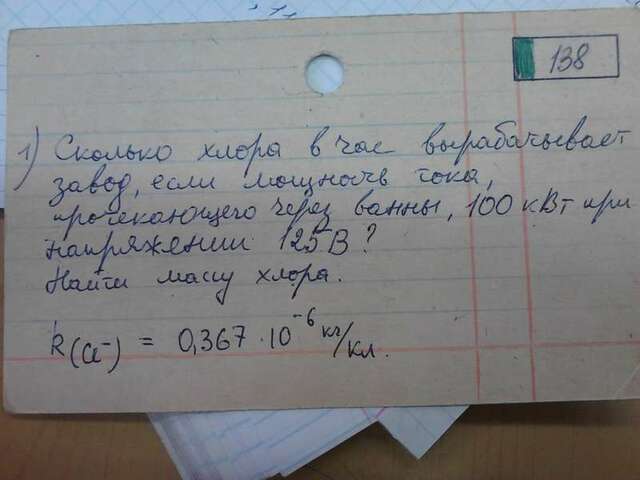 138
1) Сколько хлора в час вырабатывает
завод, если мощность тока,
протекающего через ванны, 100 кВт при
напряжении 125 В?
Найти массу хлора.
k(Cl⁻) = 0,367 · 10⁻⁶ кг/кл.